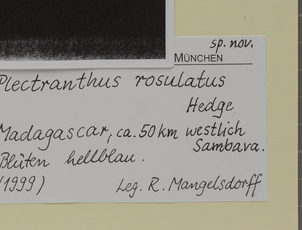 sp. nov.
MÜNCHEN
Plectranthus rosulatus
Hedge
Madagascar, ca. 50 km westlich
Sambava.
Blüten hellblau.
(1999) Leg. R. Mangelsdorff